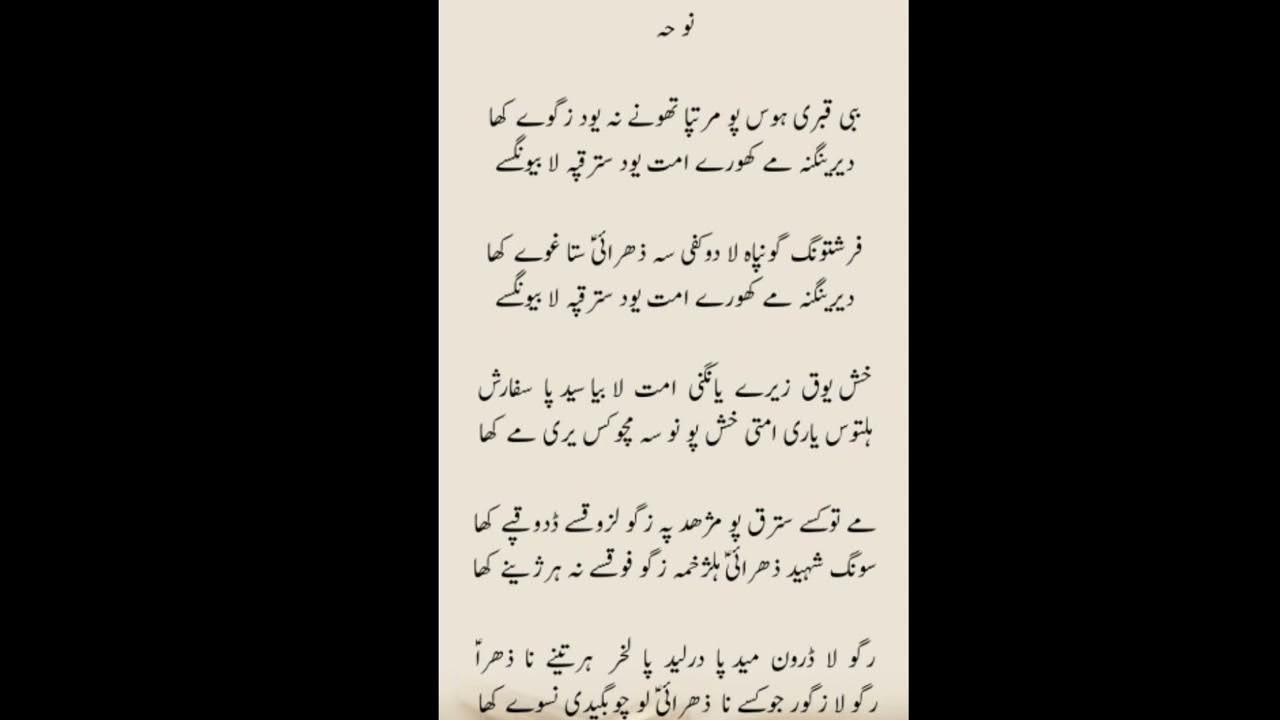 نو حہ
ببی قبری ہوس پو مر تپا تھونے نہ یود ز گوے کھا
دیرینگنہ مے کھورے امت یود ستر قپہ لا بیونگسے
فرشتونگ گونپاہ لا دو کفی سہ ذھرائیؑ ستا غوے کھا
دیرینگنہ مے کھورے امت یود ستر قپہ لا بیونگسے
خش یوق زیرے یانگنی امت لا بیا سید پا سفارش
ہلتوس یاری امتی خش پو نو سہ مچو کس یری مے کھا
مے تو کسے ستر ق پو مژھد پہ ز گو لزوقسے ڈدوقپے کھا
سونگ شہید ذھرائیؑ ہلژخمہ ز گو فوقسے نہ ہر ژینے کھا
رگو لا ڈرون مید پا درلید پا لخر ہر تینے نا ذھراؑ
رگو لا ز گور جو کسے نا ذھرائیؑ لو چو بگیدی نسوے کھا